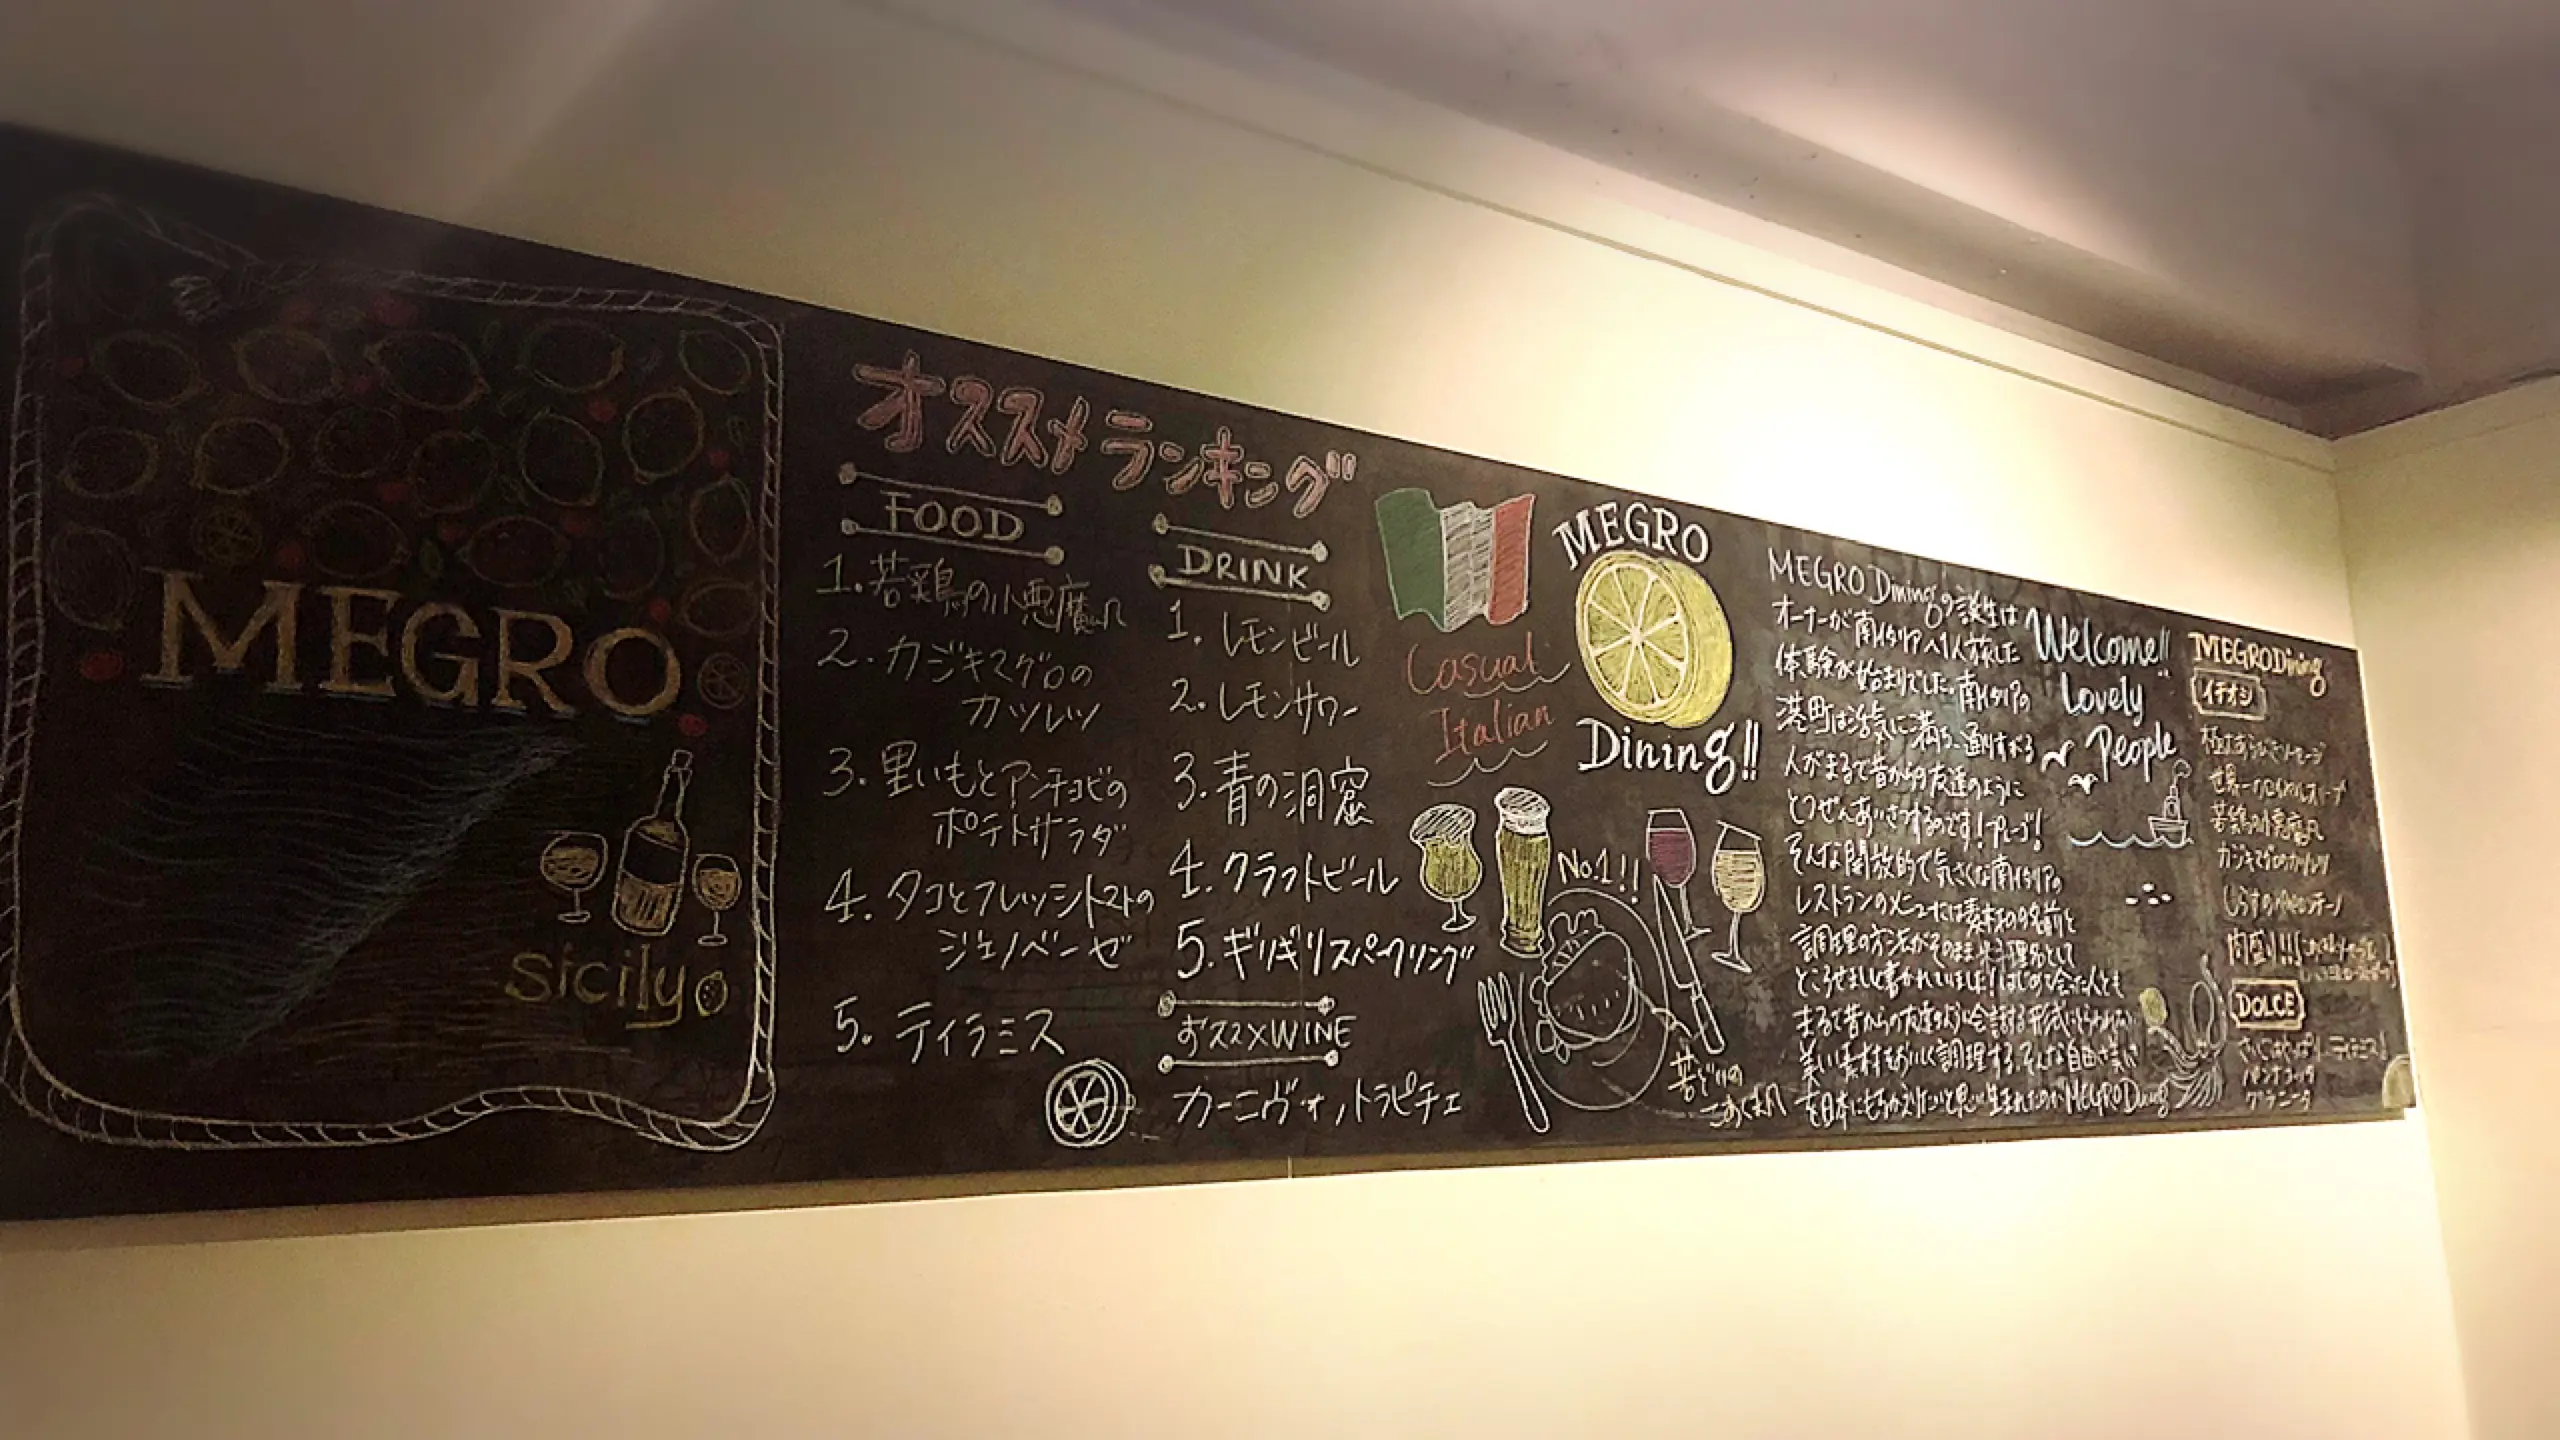 MEGRO
sicily
オススメランキング
FOOD
1. 若鶏の小悪魔風
2. カジキマグロの
カツレツ
3. 里いもとアンチョビの
ポテトサラダ
4. タコとフレッシュトマトの
ジェノベーゼ
5. ティラミス
DRINK
1. レモンビール
2. レモンサワー
3. 青の洞窟
4. クラフトビール
5. ギリギリスパークリング
おススメWINE
カーニヴォ,トラピチェ
Casual
Italian
MEGRO
Dining!!
No.1!!
若どりの
こあくま風
MEGRO Diningの誕生は
オーナーが南イタリアへ1人旅した
体験が始まりでした。南イタリアの
港町は活気に満ち、通りすがる
人がまるで昔からの友達のように
とつぜんあいさつするのです!プレーゴ!
そんな開放的で気さくな南イタリアの
レストランのメニューには素材の名前と
調理の方法がそのまま料理名として
ところせましと書かれていました!はじめて会った人とも
まるで昔からの友達のように会話する形式にとらわれない
美しい素材をおいしく調理する。そんな自由さ
を日本にもちかえりたいと思い生まれたのがMEGRO Dining
Welcome!!
Lovely
People
MEGRO Dining
イチオシ
極太あらびきソーセージ
世界一
若鶏の小悪魔風
カジキマグロのカツレツ
しらすのペペロンチーノ
肉盛り!!!
DOLCE
ティラミス
パンナコッタ
グラニータ